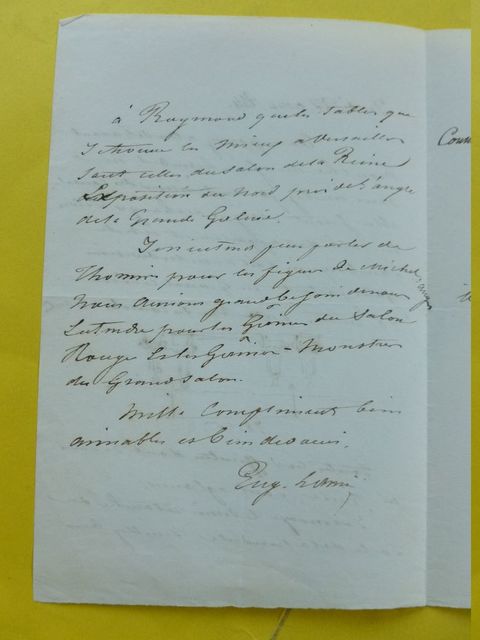 à Raymond que les tables que
je trouve les mieux à Versailles
sont celles du Salon de la Reine
Exposition du Nord près de l'angle
de la Grande Galerie.
pas parler de
Thomire pour les figures de Michel ange
Nous avions grand besoin de nous
entendre pour les Gaines du Salon
Rouge et les Gaines-Monstres
du Grand Salon.
Mille Compliments bien
aimables et bien de vous.
Eug. Lami
Conn